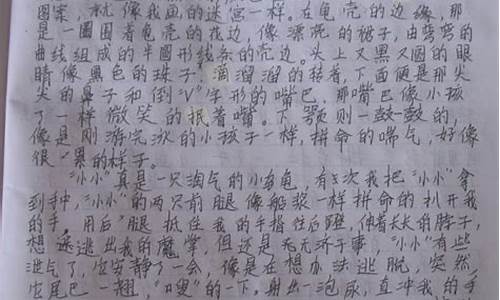 图案，就像我画的迷宫一样。在龟壳的边缘，那
是一圈围着龟壳的花边，像漂亮的裙子，由弯弯的
曲线组成的半圆形线条的壳边。头上又黑又圆的眼
睛像黑色的珠子，滴溜溜的转着，下面便是那尖
尖的鼻子和倒“V”字形的嘴巴，那嘴巴像小孩
了一样微笑的抿着嘴。下颚则一鼓一鼓的，
像是刚游完泳的小孩子一样，拼命的喘气，好像
很累的样子。
“小小”真是一只淘气的小乌龟，有一次我把“小小”拿
到手中，“小小”的两只前腿像船桨一样拼命的扒开我
的手，用后腿抵住我的手指往后蹬，伸着长长的脖子，
想逃出我的魔掌，但还是无无济于事。“小小”有些
泄气了，它安静了一会，像是在想办法逃脱，突然
它尾巴一翘，“嗖”的一下，射出一泡尿，直冲我的手